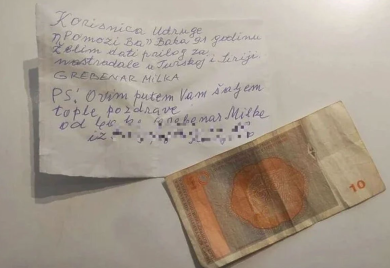 Korisnica Udruge
"Pomozi Ba" Baka 91 godinu
Želim dati prilog za
nastradale u Turskoj i Siriji
GREBENAR MILKA
PS! Ovim putem Vam šaljem
tople pozdrave
od Grebenar Milke
iz
10